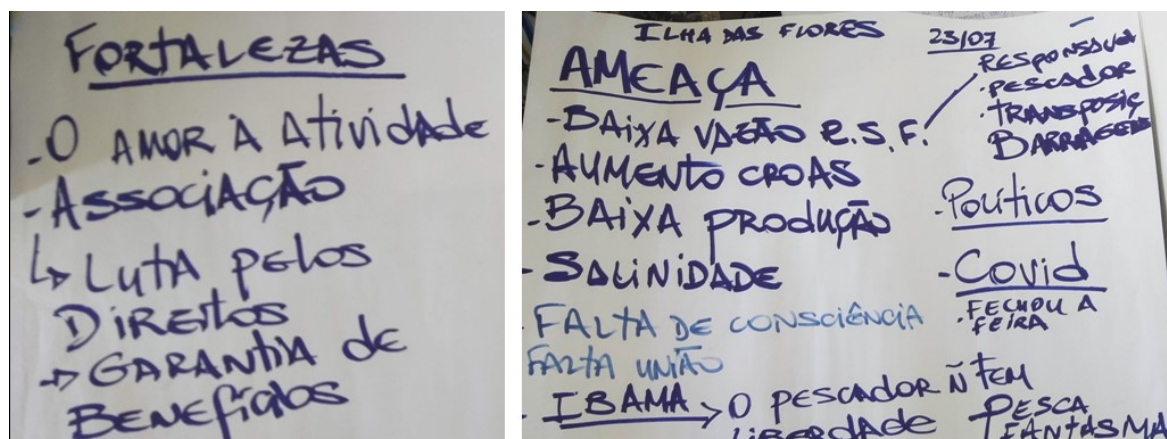 FORTALEZAS
- O AMOR À AtividAde
- ASSOCIAÇÃO
↳ LUTA PELOS
DIREITOS
→ GARANTIA de
BENEFÍCIOS
ILHA DAS FLORES
23/07
AMEAÇA
- BAIXA VAZÃO R.S.F.
- AUMENTO CROAS
- BAIXA PRODUÇÃO
- SALINIDADE
- FALTA DE CONSCIÊNCIA
FALTA UNIÃO
- IBAMA → O PESCADOR Ñ TEM
LIBERDADE
RESPONSÁVEL
· PESCADOR
· TRANSPOSIÇ
BARRAGENS
- Políticos
- Covid
· FECHOU A
FEIRA
PESCA
FANTASMA